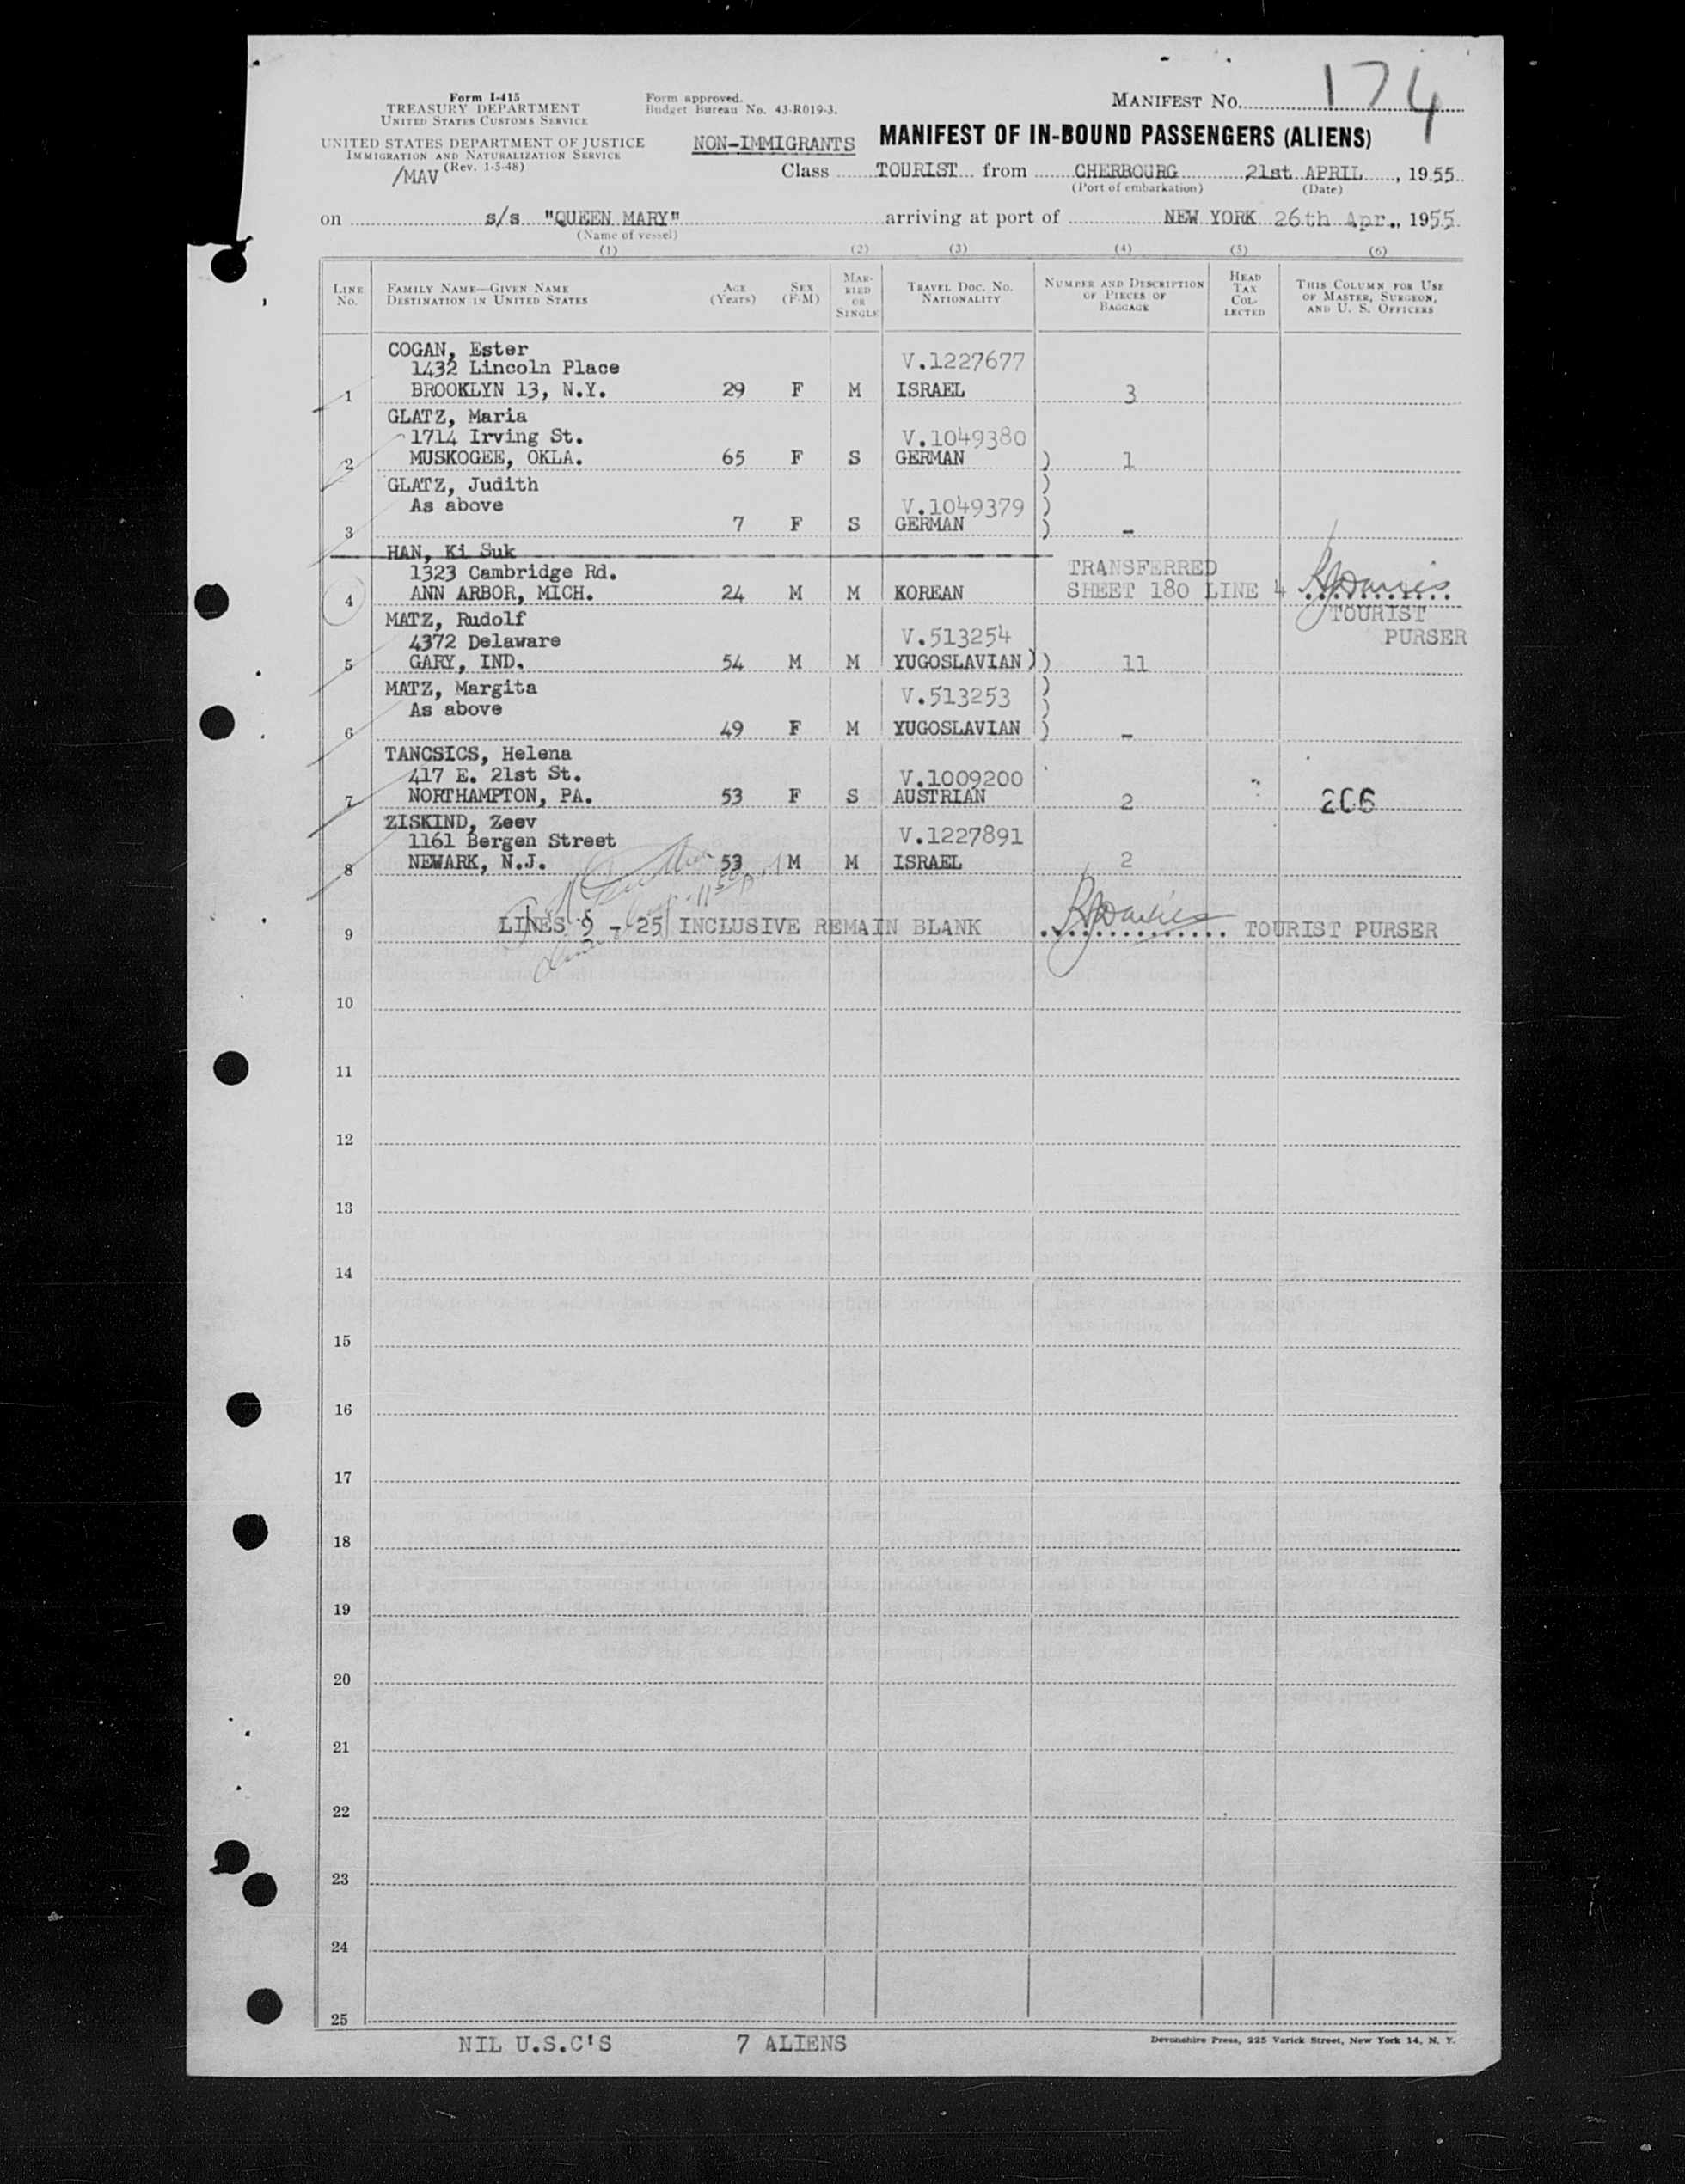 174
Form I-415
TREASURY DEPARTMENT
UNITED STATES CUSTOMS SERVICE
UNITED STATES DEPARTMENT OF JUSTICE
IMMIGRATION AND NATURALIZATION SERVICE
(Rev. 1-5-48)
/MAV
Form approved.
Budget Bureau No. 43-R019-3.
MANIFEST NO.
NON-IMMIGRANTS MANIFEST OF IN-BOUND PASSENGERS (ALIENS)
Class TOURIST from CHERBOURG 21st APRIL, 1955
(Port of embarkation) (Date)
on s/s "QUEEN MARY" arriving at port of NEW YORK 26th Apr., 1955
(Name of vessel)
(1) (2) (3) (4) (5) (6)
LINE No. FAMILY NAME—GIVEN NAME DESTINATION IN UNITED STATES AGE (Years) SEX (F-M) MARRIED OR SINGLE TRAVEL DOC. NO. NATIONALITY NUMBER AND DESCRIPTION OF PIECES OF BAGGAGE HEAD TAX COLLECTED THIS COLUMN FOR USE OF MASTER, SURGEON, AND U. S. OFFICERS
COGAN, Ester
1432 Lincoln Place V.1227677
1 BROOKLYN 13, N.Y. 29 F M ISRAEL 3
GLATZ, Maria
1714 Irving St. V.1049380
2 MUSKOGEE, OKLA. 65 F S GERMAN ) 1
GLATZ, Judith )
As above V.1049379 )
3 7 F S GERMAN ) -
HAN, Ki Suk
1323 Cambridge Rd. TRANSFERRED
4 ANN ARBOR, MICH. 24 M M KOREAN SHEET 180 LINE 4
MATZ, Rudolf TOURIST
4372 Delaware V.513254 PURSER
5 GARY, IND. 54 M M YUGOSLAVIAN )) 11
MATZ, Margita )
As above V.513253 )
6 49 F M YUGOSLAVIAN ) -
TANCSICS, Helena
417 E. 21st St. V.1009200
7 NORTHAMPTON, PA. 53 F S AUSTRIAN 2 206
ZISKIND, Zeev
1161 Bergen Street V.1227891
8 NEWARK, N.J. 53 M M ISRAEL 2
9 LINES 9 - 25 INCLUSIVE REMAIN BLANK TOURIST PURSER
10
11
12
13
14
15
16
17
18
19
20
21
22
23
24
25
NIL U.S.C'S 7 ALIENS
Devonshire Press, 225 Varick Street, New York 14, N. Y.